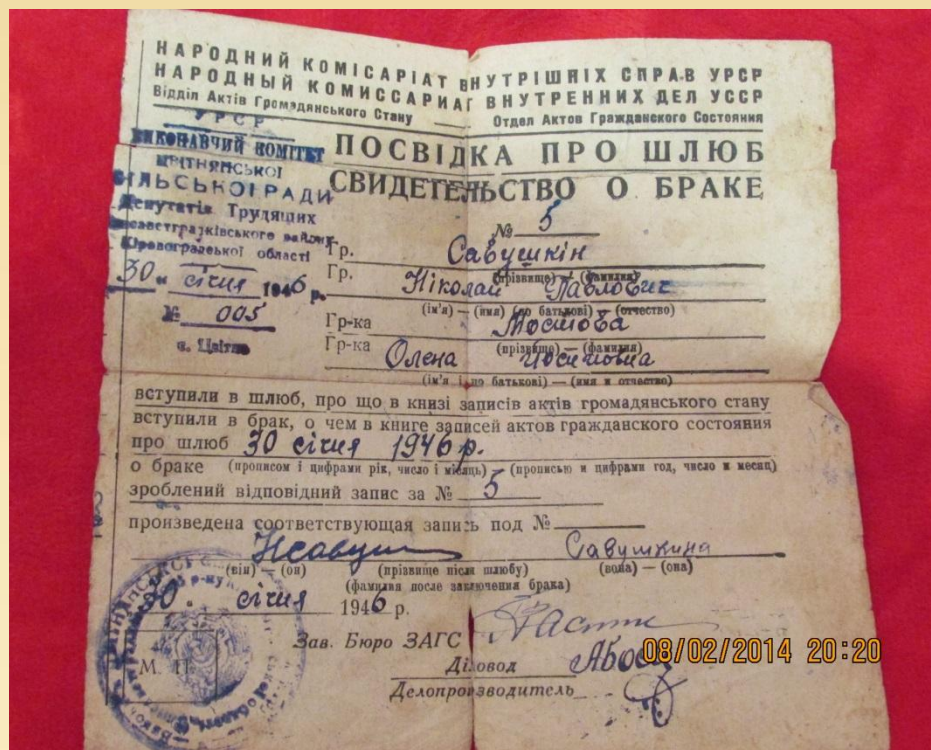 НАРОДНИЙ КОМІСАРІАТ ВНУТРІШНІХ СПРАВ УРСР
НАРОДНЫЙ КОМИССАРИАТ ВНУТРЕННИХ ДЕЛ УССР
Відділ Актів Громадянського Стану
Отдел Актов Гражданского Состояния
УРСР
ВИКОНАВЧИЙ КОМІТЕТ
СІЛЬСЬКОЇ РАДИ
Депутатів Трудящих
Кіровоградської області
30 " січня 1946 р.
№ 005
с. Цвітне
ПОСВІДКА ПРО ШЛЮБ
СВИДЕТЕЛЬСТВО О БРАКЕ
№ 5
Гр. Савушкін
Гр. (прізвище) — (фамилия)
Ніколай Павлович
(ім'я) — (имя) (по батькові) — (отчество)
Гр-ка
Гр-ка (прізвище) — (фамилия)
Олена
(ім'я і по батькові) — (имя и отчество)
вступили в шлюб, про що в книзі записів актів громадянського стану
вступили в брак, о чем в книге записей актов гражданского состояния
про шлюб 30 січня 1946 р.
о браке (прописом і цифрами рік, число і місяць) — (прописью и цифрами год, число и месяц)
зроблений відповідний запис за № 5
произведена соответствующая запись под №
Савушкина
(він) — (он) (прізвище після шлюбу) (вона) — (она)
(фамилия после заключения брака)
30 січня 1946 р.
Зав. Бюро ЗАГС
М. П.
Діловод
Делопроизводитель
08/02/2014 20:20